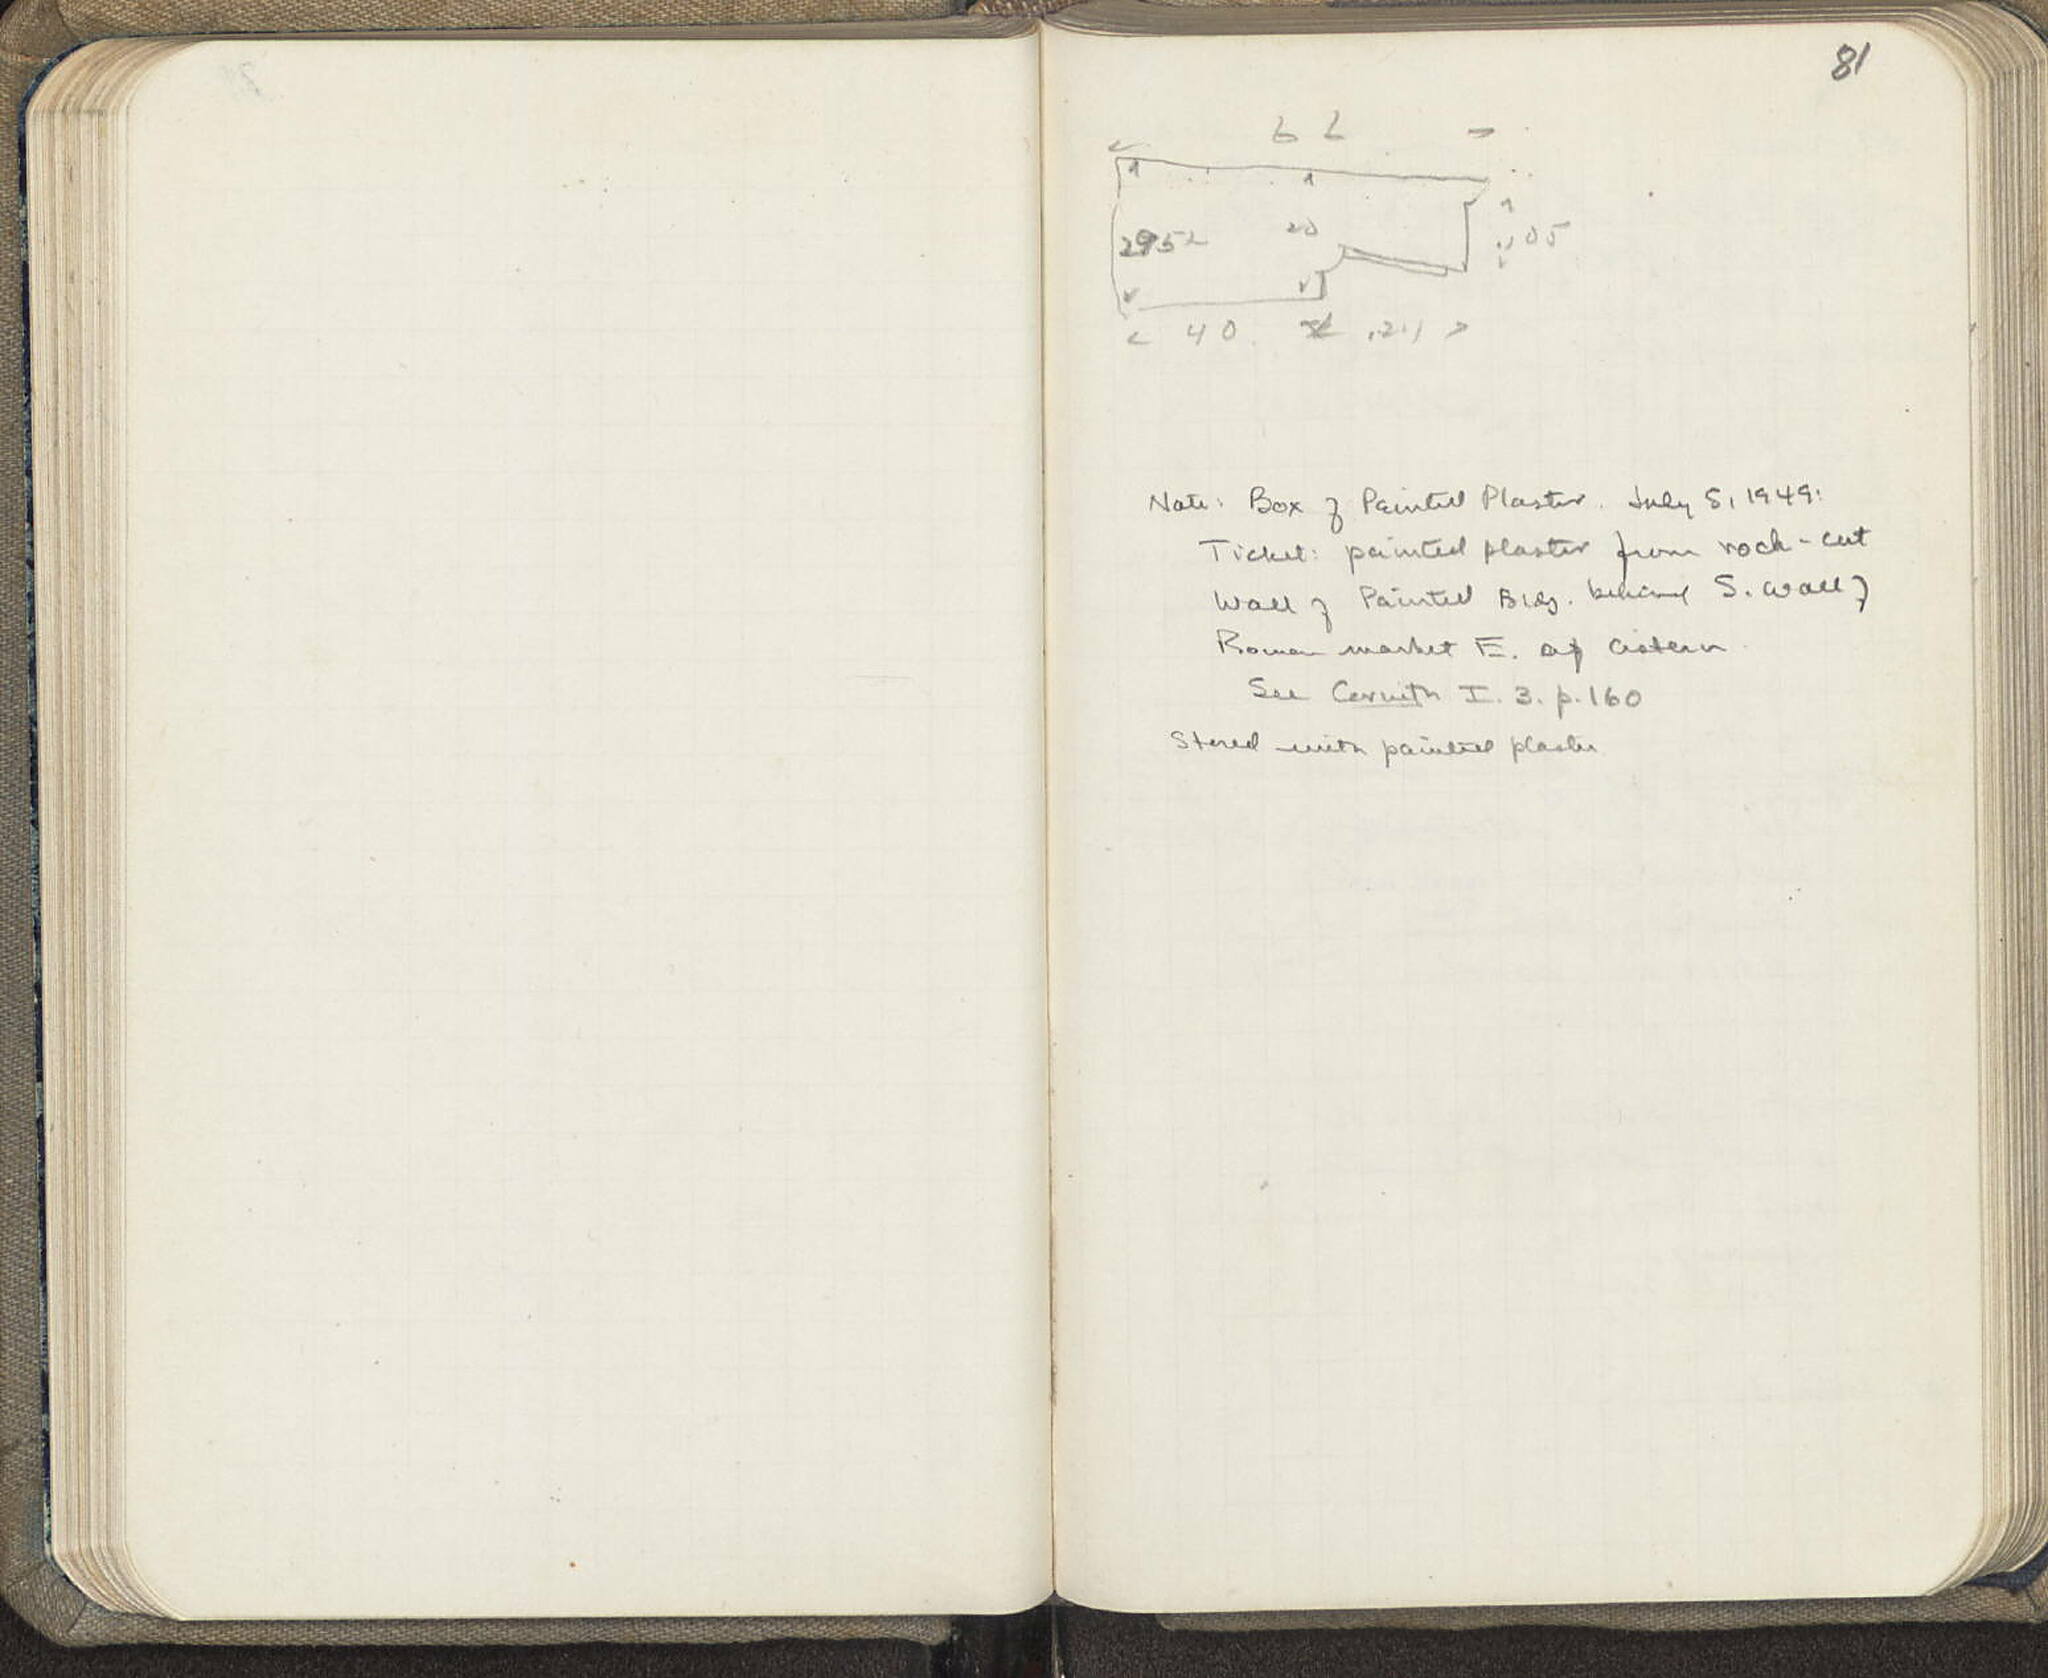 81
62
2952
20
.05
40
.21
Note: Box of Painted Plaster. July 5, 1949:
Ticket: painted plaster from rock-cut
Wall of Painted Bldg. behind S. wall of
Roman market E. of cistern
See Corinth I. 3. p. 160
Stored with painted plaster